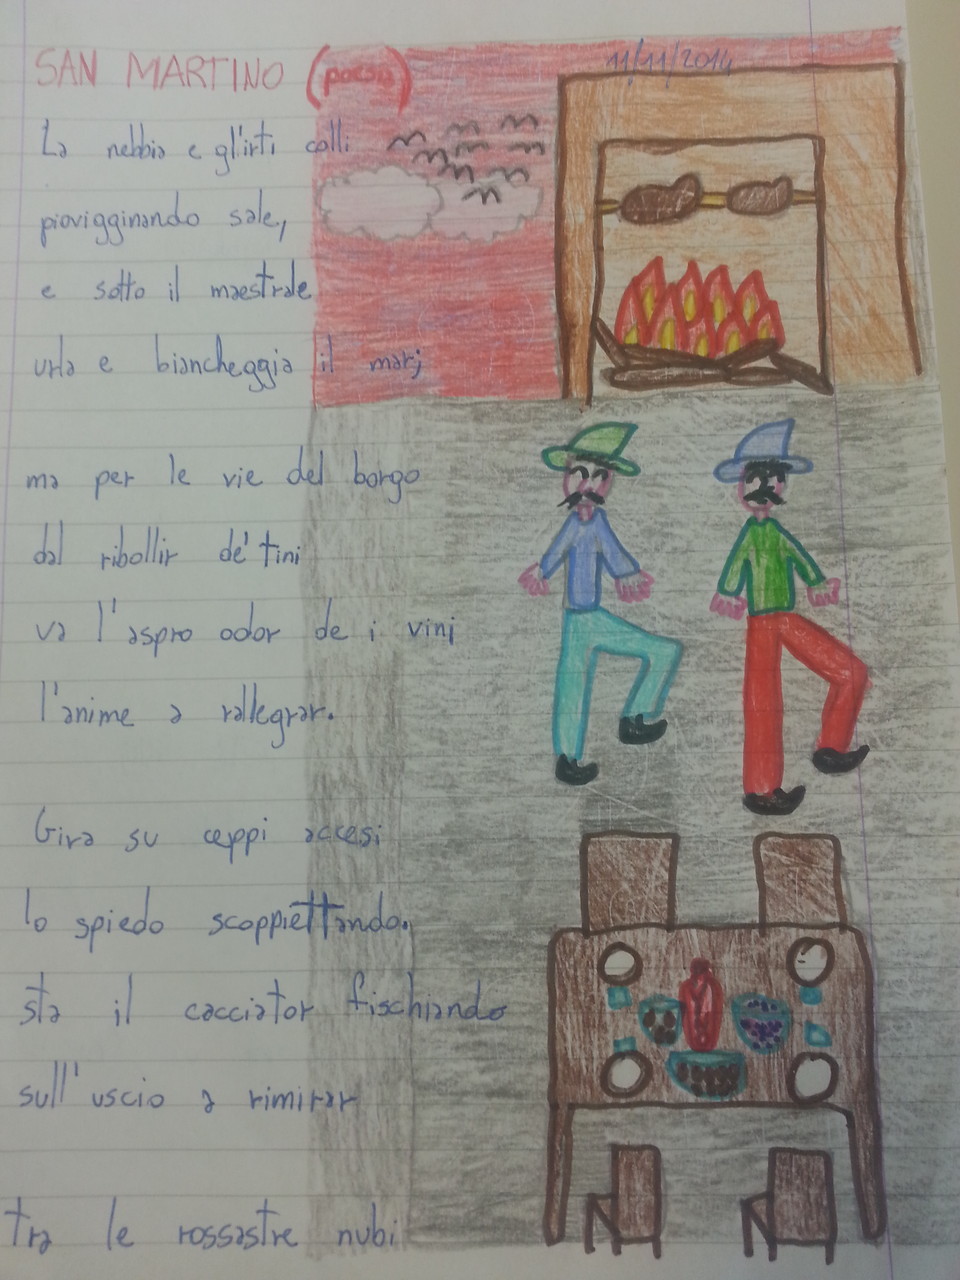 SAN MARTINO (poesia)
11/11/2014
La nebbia e gl'irti colli
piovigginando sale,
e sotto il maestrale
urla e biancheggia il mar;
ma per le vie del borgo
dal ribollir de' tini
va l'aspro odor de i vini
l'anime a rallegrar.
Gira su ceppi accesi
lo spiedo scoppiettando.
sta il cacciator fischiando
sull'uscio a rimirar
tra le rossastre nubi